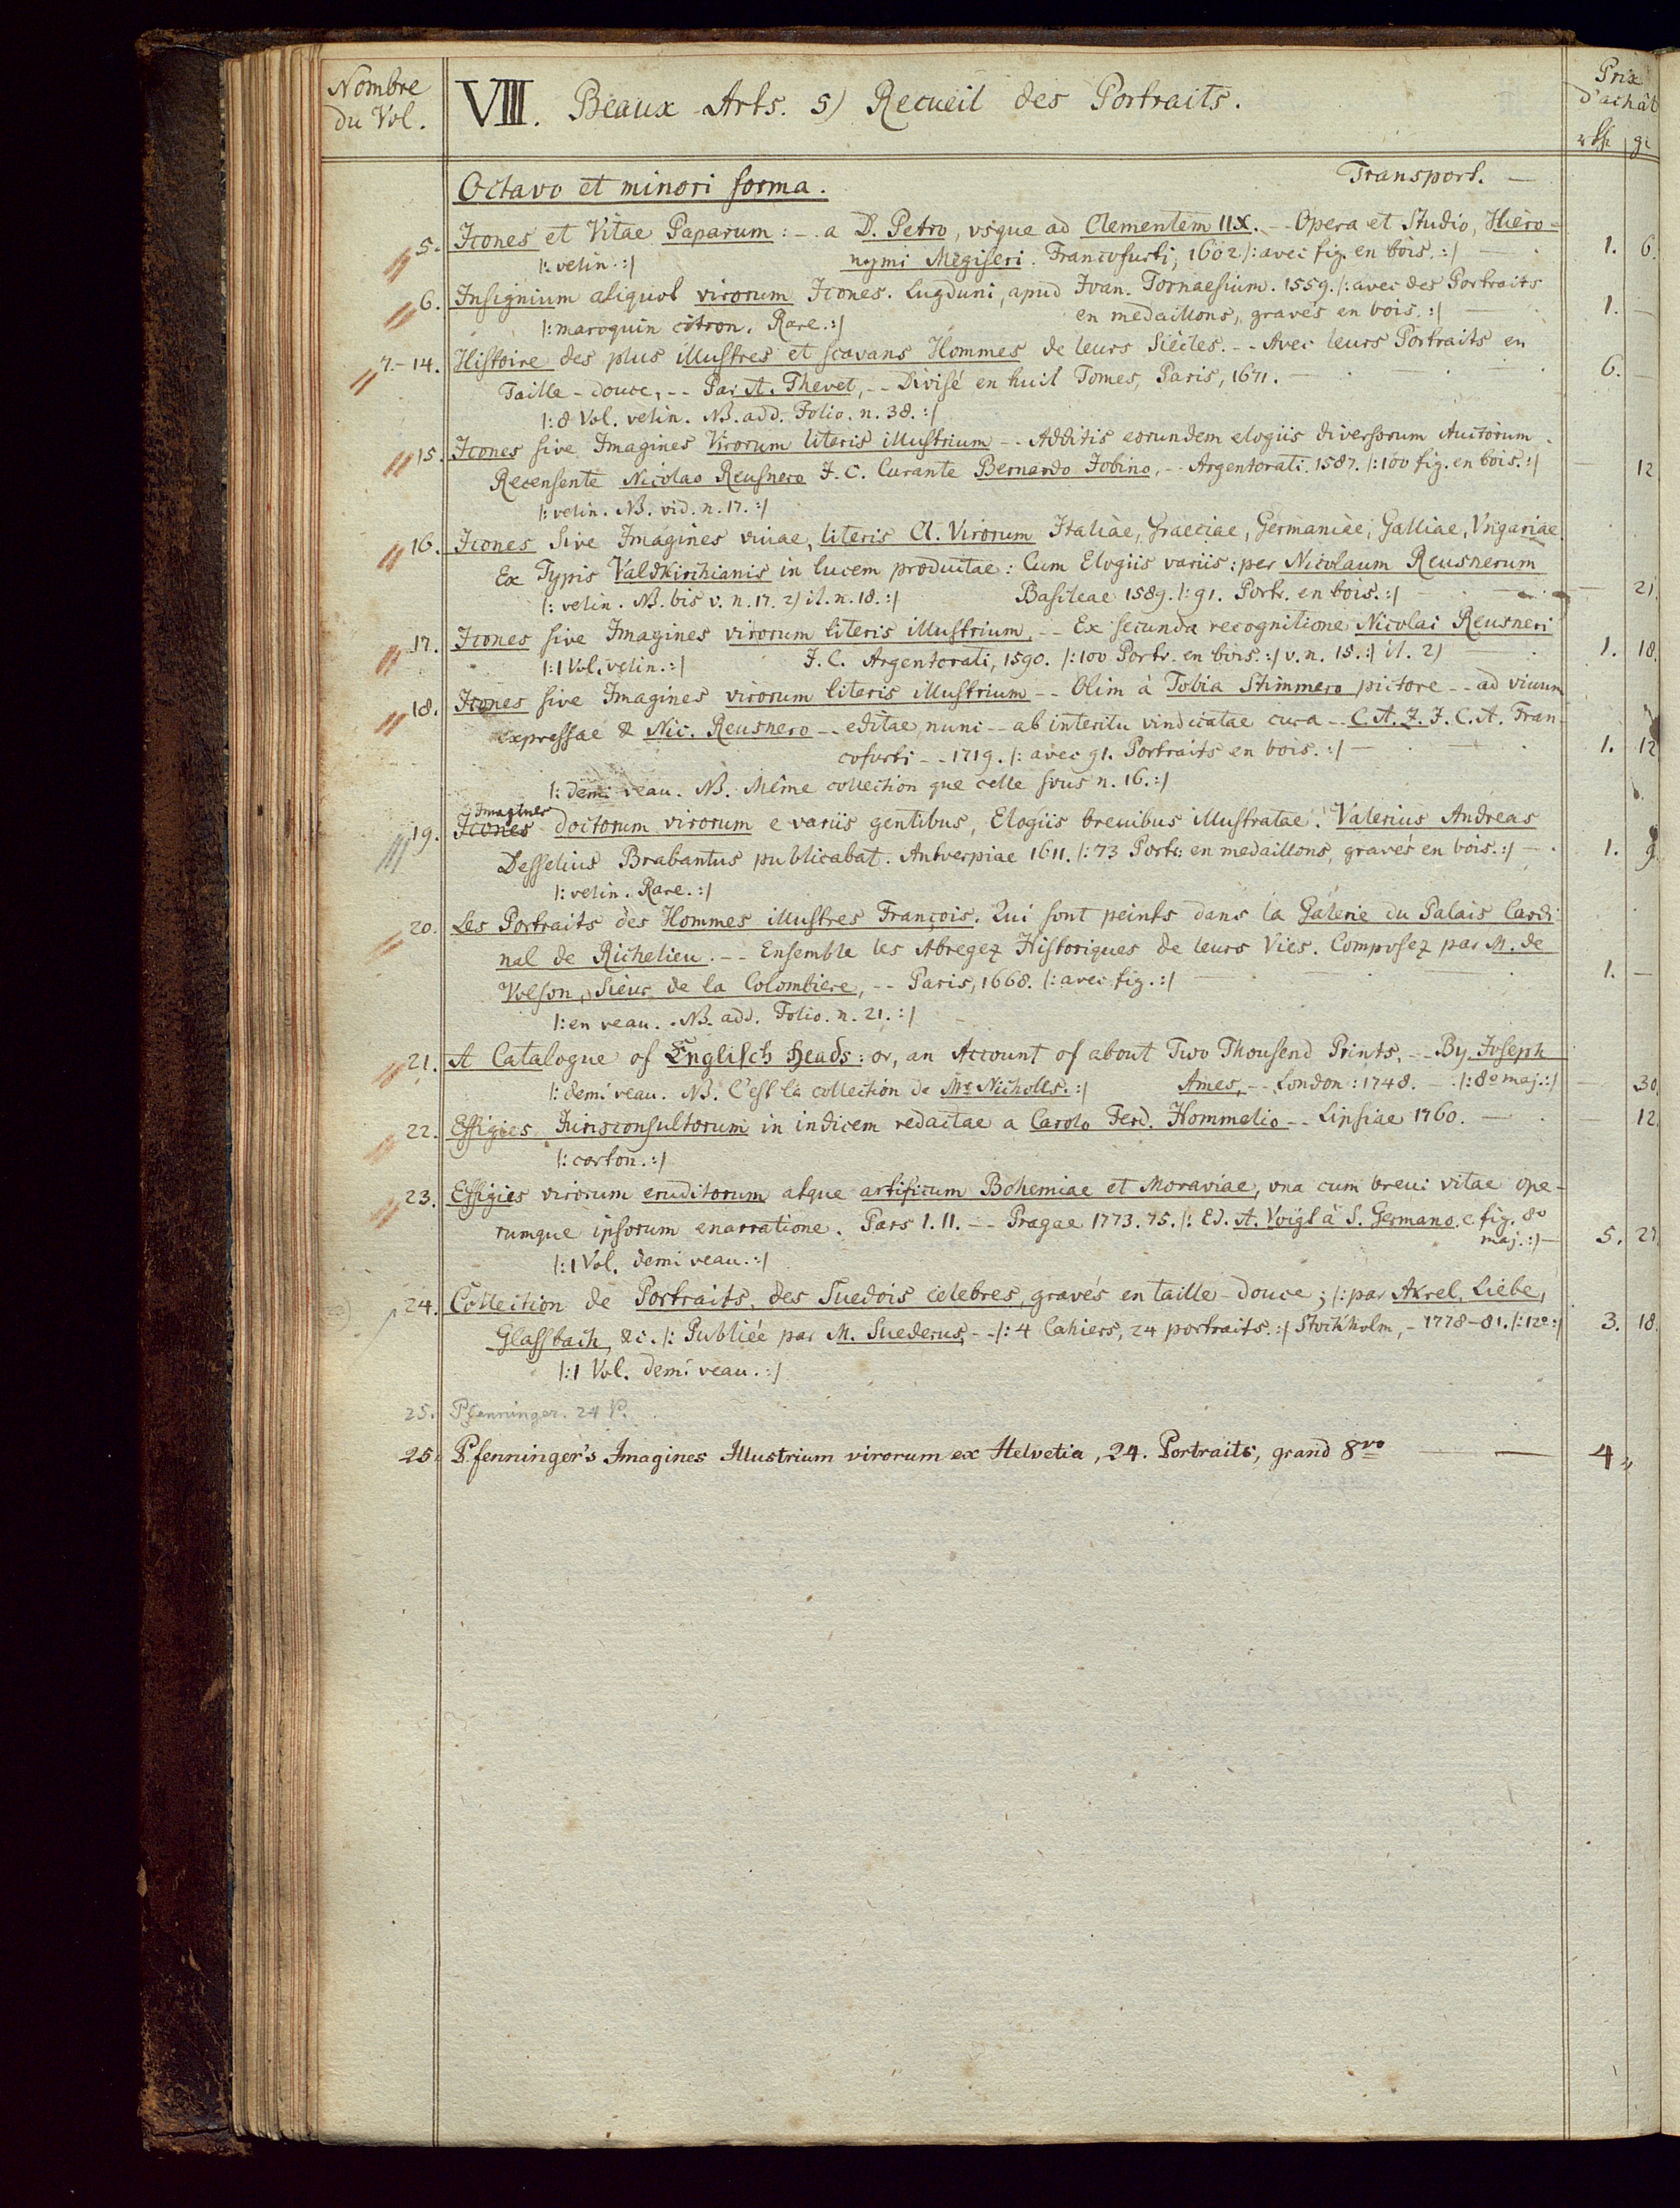 Nombre du Vol.
VIII. Beaux-Arts. 5) Recueil des Portraits.
Prix d'achât
rthl gr
Octavo et minori forma. Transport. —
5. Icones et Vitae Paparum: -. a D. Petro, vsque ad Clementem IIX. -- Opera et Studio, Hiero-
|: velin. :| nymi Megiseri. Francofurti, 1602 |: avec fig. en bois. :| — 1. 6.
6. Insignium aliquot virorum Icones. Lugduni, apud Ioan. Tornaesium. 1559. |: avec des Portraits
|: maroquin citron. Rare. :| en medaillons, gravés en bois. :| — 1. —
7.-14. Histoire des plus illustres et scavans Hommes de leurs Siécles. -- Avec leurs Portraits en
Taille-douce, -- Par A. Thevet, -- Divisé en huit Tomes, Paris, 1671. — 6. —
|: 8 Vol. velin. NB. add. Folio. n. 38. :|
15. Icones sive Imagines Virorum literis illustrium -- Additis eorundem elogiis diversorum Auctorum.
Recensente Nicolao Reusnero I. C. Curante Bernardo Iobino, -- Argentorati. 1587. |: 100 fig. en bois. :| — 12
|: velin. NB. vid. n. 17. :|
16. Icones sive Imagines viuae, literis Cl. Virorum Italiae, Graeciae, Germaniae, Galliae, Vngariae.
Ex Typis Valdkirchianis in lucem productae: Cum Elogiis variis: per Nicolaum Reusnerum
|: velin. NB. bis v. n. 17. 2) it. n. 18. :| Basileae 1589. |: 91. Portr. en bois. :| — 21.
17. Icones sive Imagines virorum literis illustrium, -- Ex secunda recognitione Nicolai Reusneri
|: 1 Vol. velin. :| I. C. Argentorati, 1590. |: 100 Portr. en bois. :| v. n. 15. :| it. 2) — 1. 18.
18. Icones sive Imagines virorum literis illustrium -- Olim à Tobia Stimmero pictore -- ad viuum
expressae & Nic. Reusnero -- editae, nunc -- ab interitu vindicatae cura -- C. A. F. I. C. A. Fran-
cofurti -- 1719. |: avec 91. Portraits en bois. :| — 1. 12
|: demi veau. NB. Même collection que celle sous n. 16. :|
Imagines
19. Icones doctorum virorum e variis gentibus, Elogiis breuibus illustratae. Valerius Andreas
Desselius Brabantus publicabat. Antverpiae 1611. |: 73 Portr. en medaillons, gravés en bois. :| — 1. 9.
|: velin. Rare. :|
20. Les Portraits des Hommes illustres François. Qui sont peints dans la Galerie du Palais Cardi-
nal de Richelieu. -- Ensemble les Abregez Historiques de leurs Vies. Composez par M. de
Volson, Sieur de la Colombiere, -- Paris, 1668. |: avec fig. :| — 1. —
|: en veau. NB. add. Folio. n. 21. :|
21. A Catalogue of Englisch Heads: or, an Account of about Two Thousend Prints, -- By Joseph
|: demi veau. NB. C'est la collection de Mr. Nicholls. :| Ames, -- London: 1748. |: 8o maj. :| — 30.
22. Effigies Iurisconsultorum in indicem redactae a Carolo Ferd. Hommelio -- Lipsiae 1760. — 12.
|: carton. :|
23. Effigies virorum eruditorum atque artificum Bohemiae et Moraviae, vna cum breui vitae ope-
rumque ipsorum enarratione. Pars I. II. -- Pragae 1773. 75. |: Ed. A. Voigt à S. Germano. c. fig. 8o
maj. :| — 5. 21.
|: 1 Vol. demi veau. :|
24. Collection de Portraits, des Suedois celebres, gravés en taille-douce; |: par Akrel, Liebe,
Glassbach, &c. |: Publiée par M. Suederus, -- |: 4 Cahiers, 24 portraits. :| Stockholm, - 1778-81. |: 12o :| 3. 18.
|: 1 Vol. demi veau. :|
25. Pfenninger. 24 P.
25. Pfenninger's Imagines Illustrium virorum ex Helvetia, 24. Portraits, grand 8vo — — 4 „